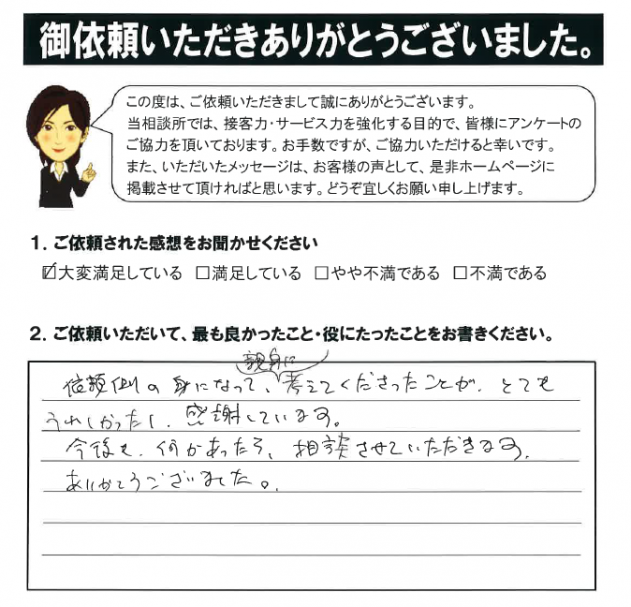 御依頼いただきありがとうございました。
この度は、ご依頼いただきまして誠にありがとうございます。
当相談所では、接客力・サービス力を強化する目的で、皆様にアンケートの
ご協力を頂いております。お手数ですが、ご協力いただけると幸いです。
また、いただいたメッセージは、お客様の声として、是非ホームページに
掲載させて頂ければと思います。どうぞ宜しくお願い申し上げます。
1．ご依頼された感想をお聞かせください
☑大変満足している □満足している □やや不満である □不満である
2．ご依頼いただいて、最も良かったこと・役にたったことをお書きください。
依頼側の身になって、親身に考えてくださったことが、とても
うれしかったし、感謝しています。
今後も、何かあったら、相談させていただきます。
ありがとうございました。